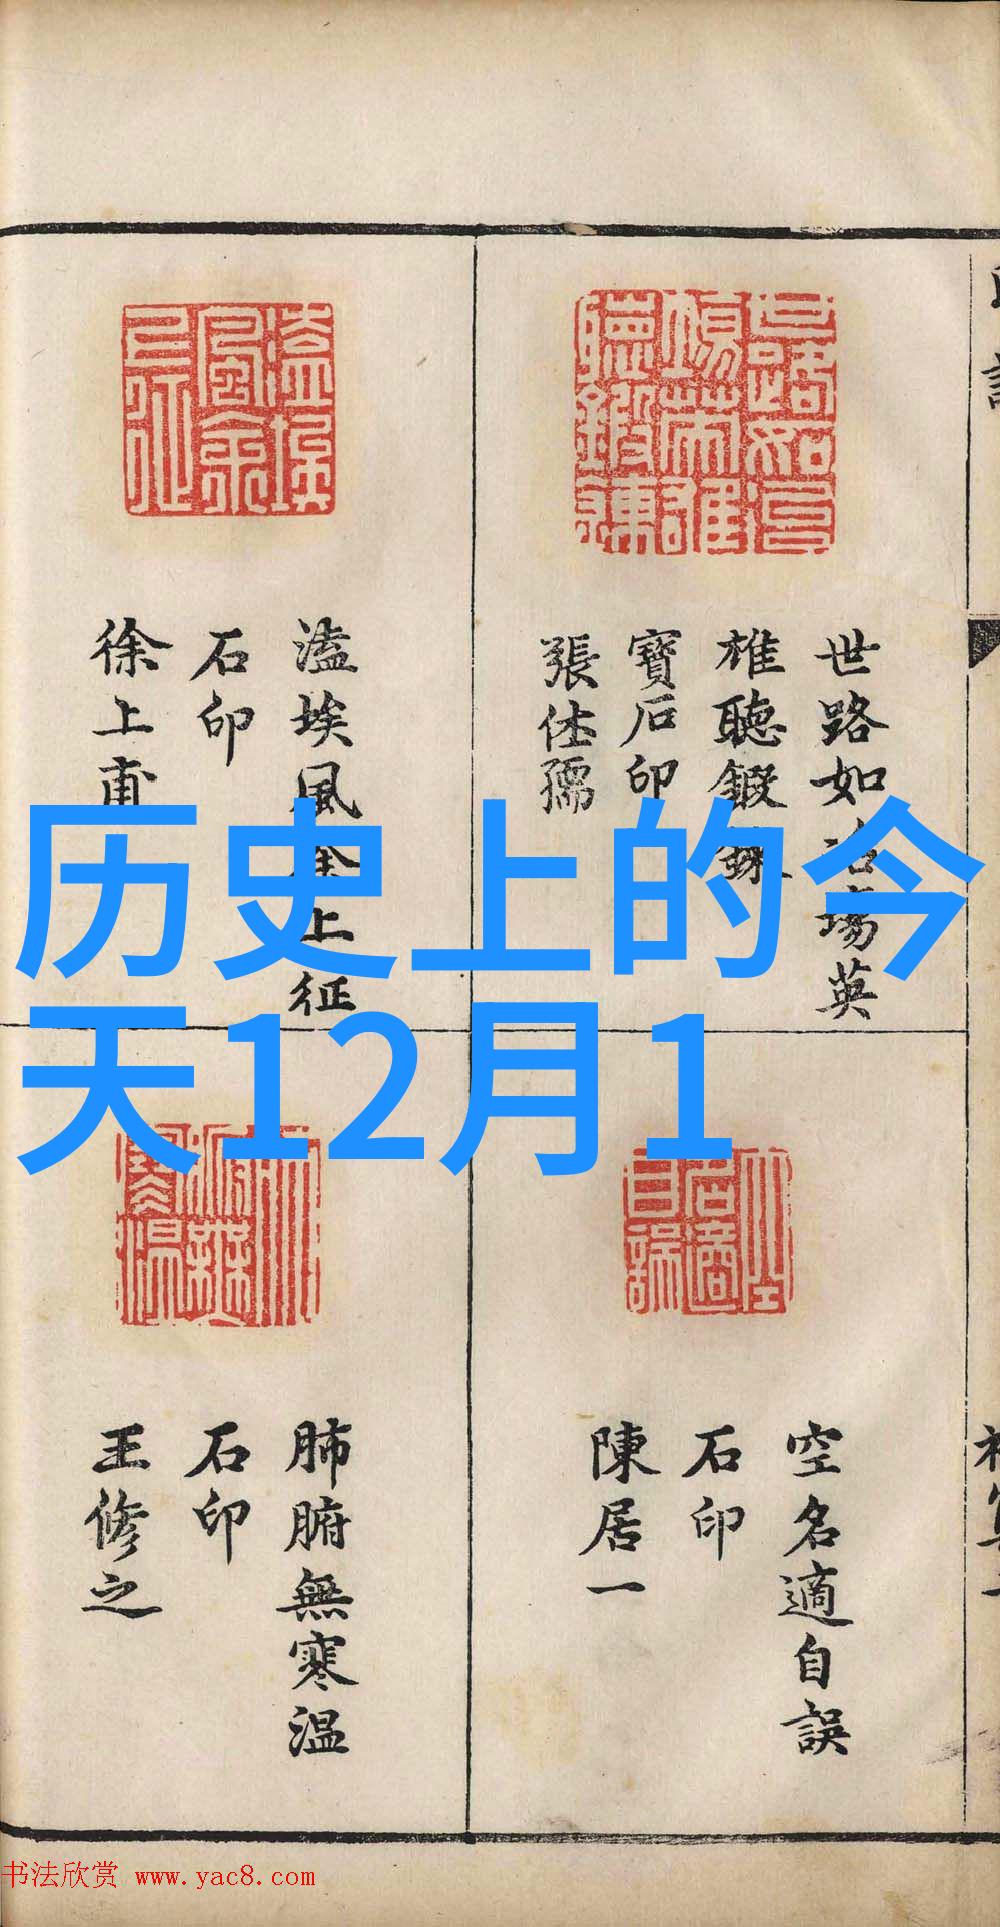 历史上的今
天12月1
世路如冶場英
雄聽鍛鍊
寶石印
張仕孺
溘埃風余上征
石印
徐上甫
空名適自誤
石印
陳居一
肺腑無寒温
石印
王修之
书法欣赏 www.yac8.com